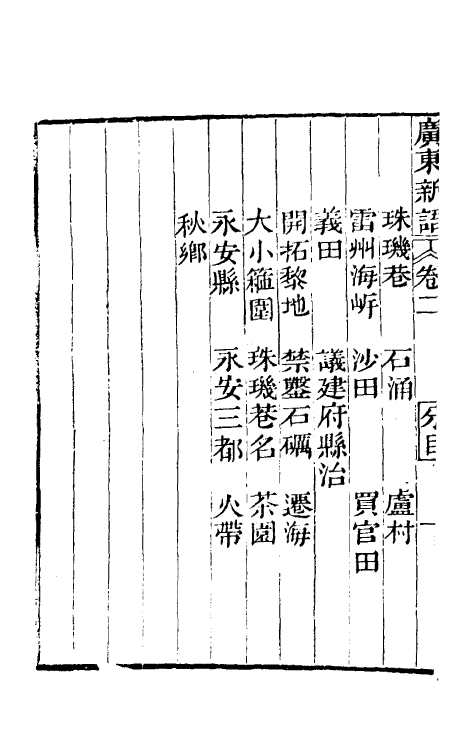 廣東新語 卷二 分目 一
珠璣巷 石涌 盧村
雷州海岍 沙田 買官田
義田 議建府縣治
開拓黎地 禁鑿石礪 遷海
大小箍圍 珠璣巷名 茶園
永安縣 永安三都 火帶
秋鄉